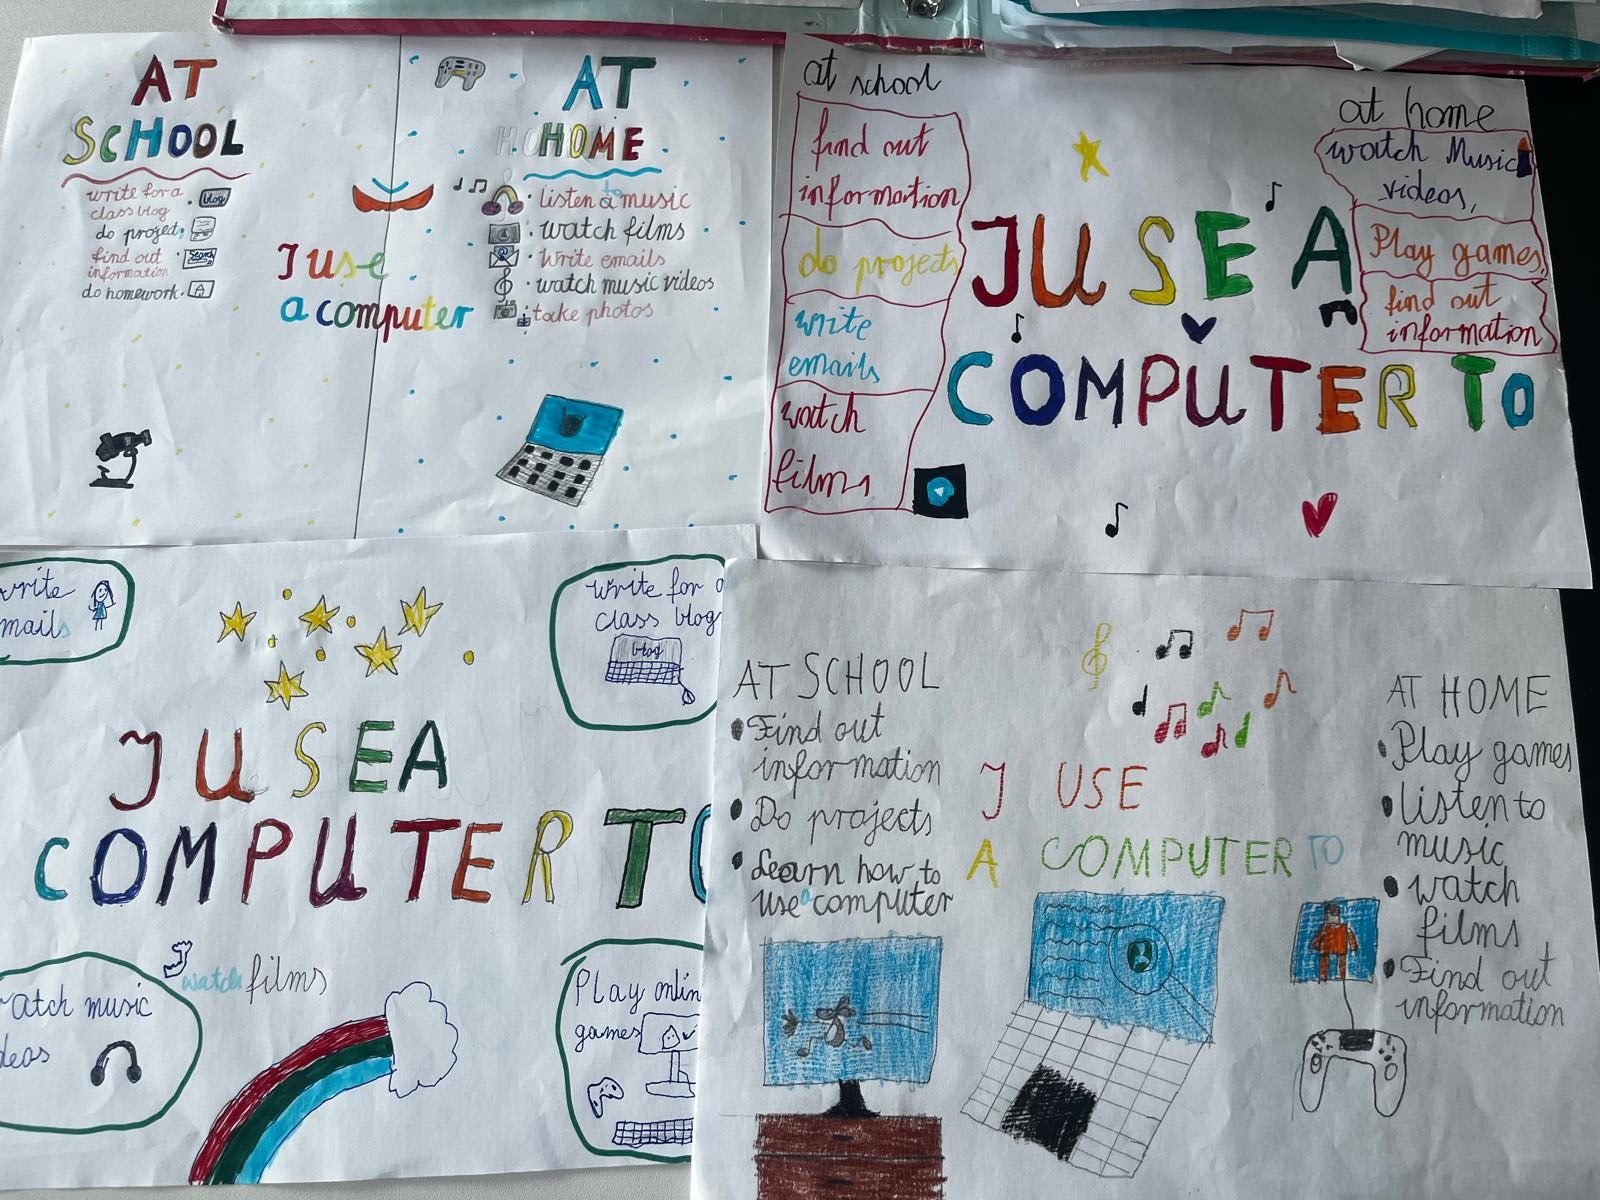 AT
SCHOOL
write for a
class blog
blog
do project
find out
information
Search
do homework
A
AT
HOME
listen to music
watch films
write emails
watch music videos
take photos
I use
a computer
at school
find out
information
do projects
write
emails
watch
films
I USE A
COMPUTER TO
at home
watch Music
videos,
Play games,
find out
information
write
mails
write for a
class blog
blog
I USE A
COMPUTER TO
watch films
atch music
deos
Play onlin
games
AT SCHOOL
• Find out
information
• Do projects
• Learn how to
use a computer
I USE
A COMPUTER TO
AT HOME
• Play games
• listen to
music
• watch
films
• Find out
information